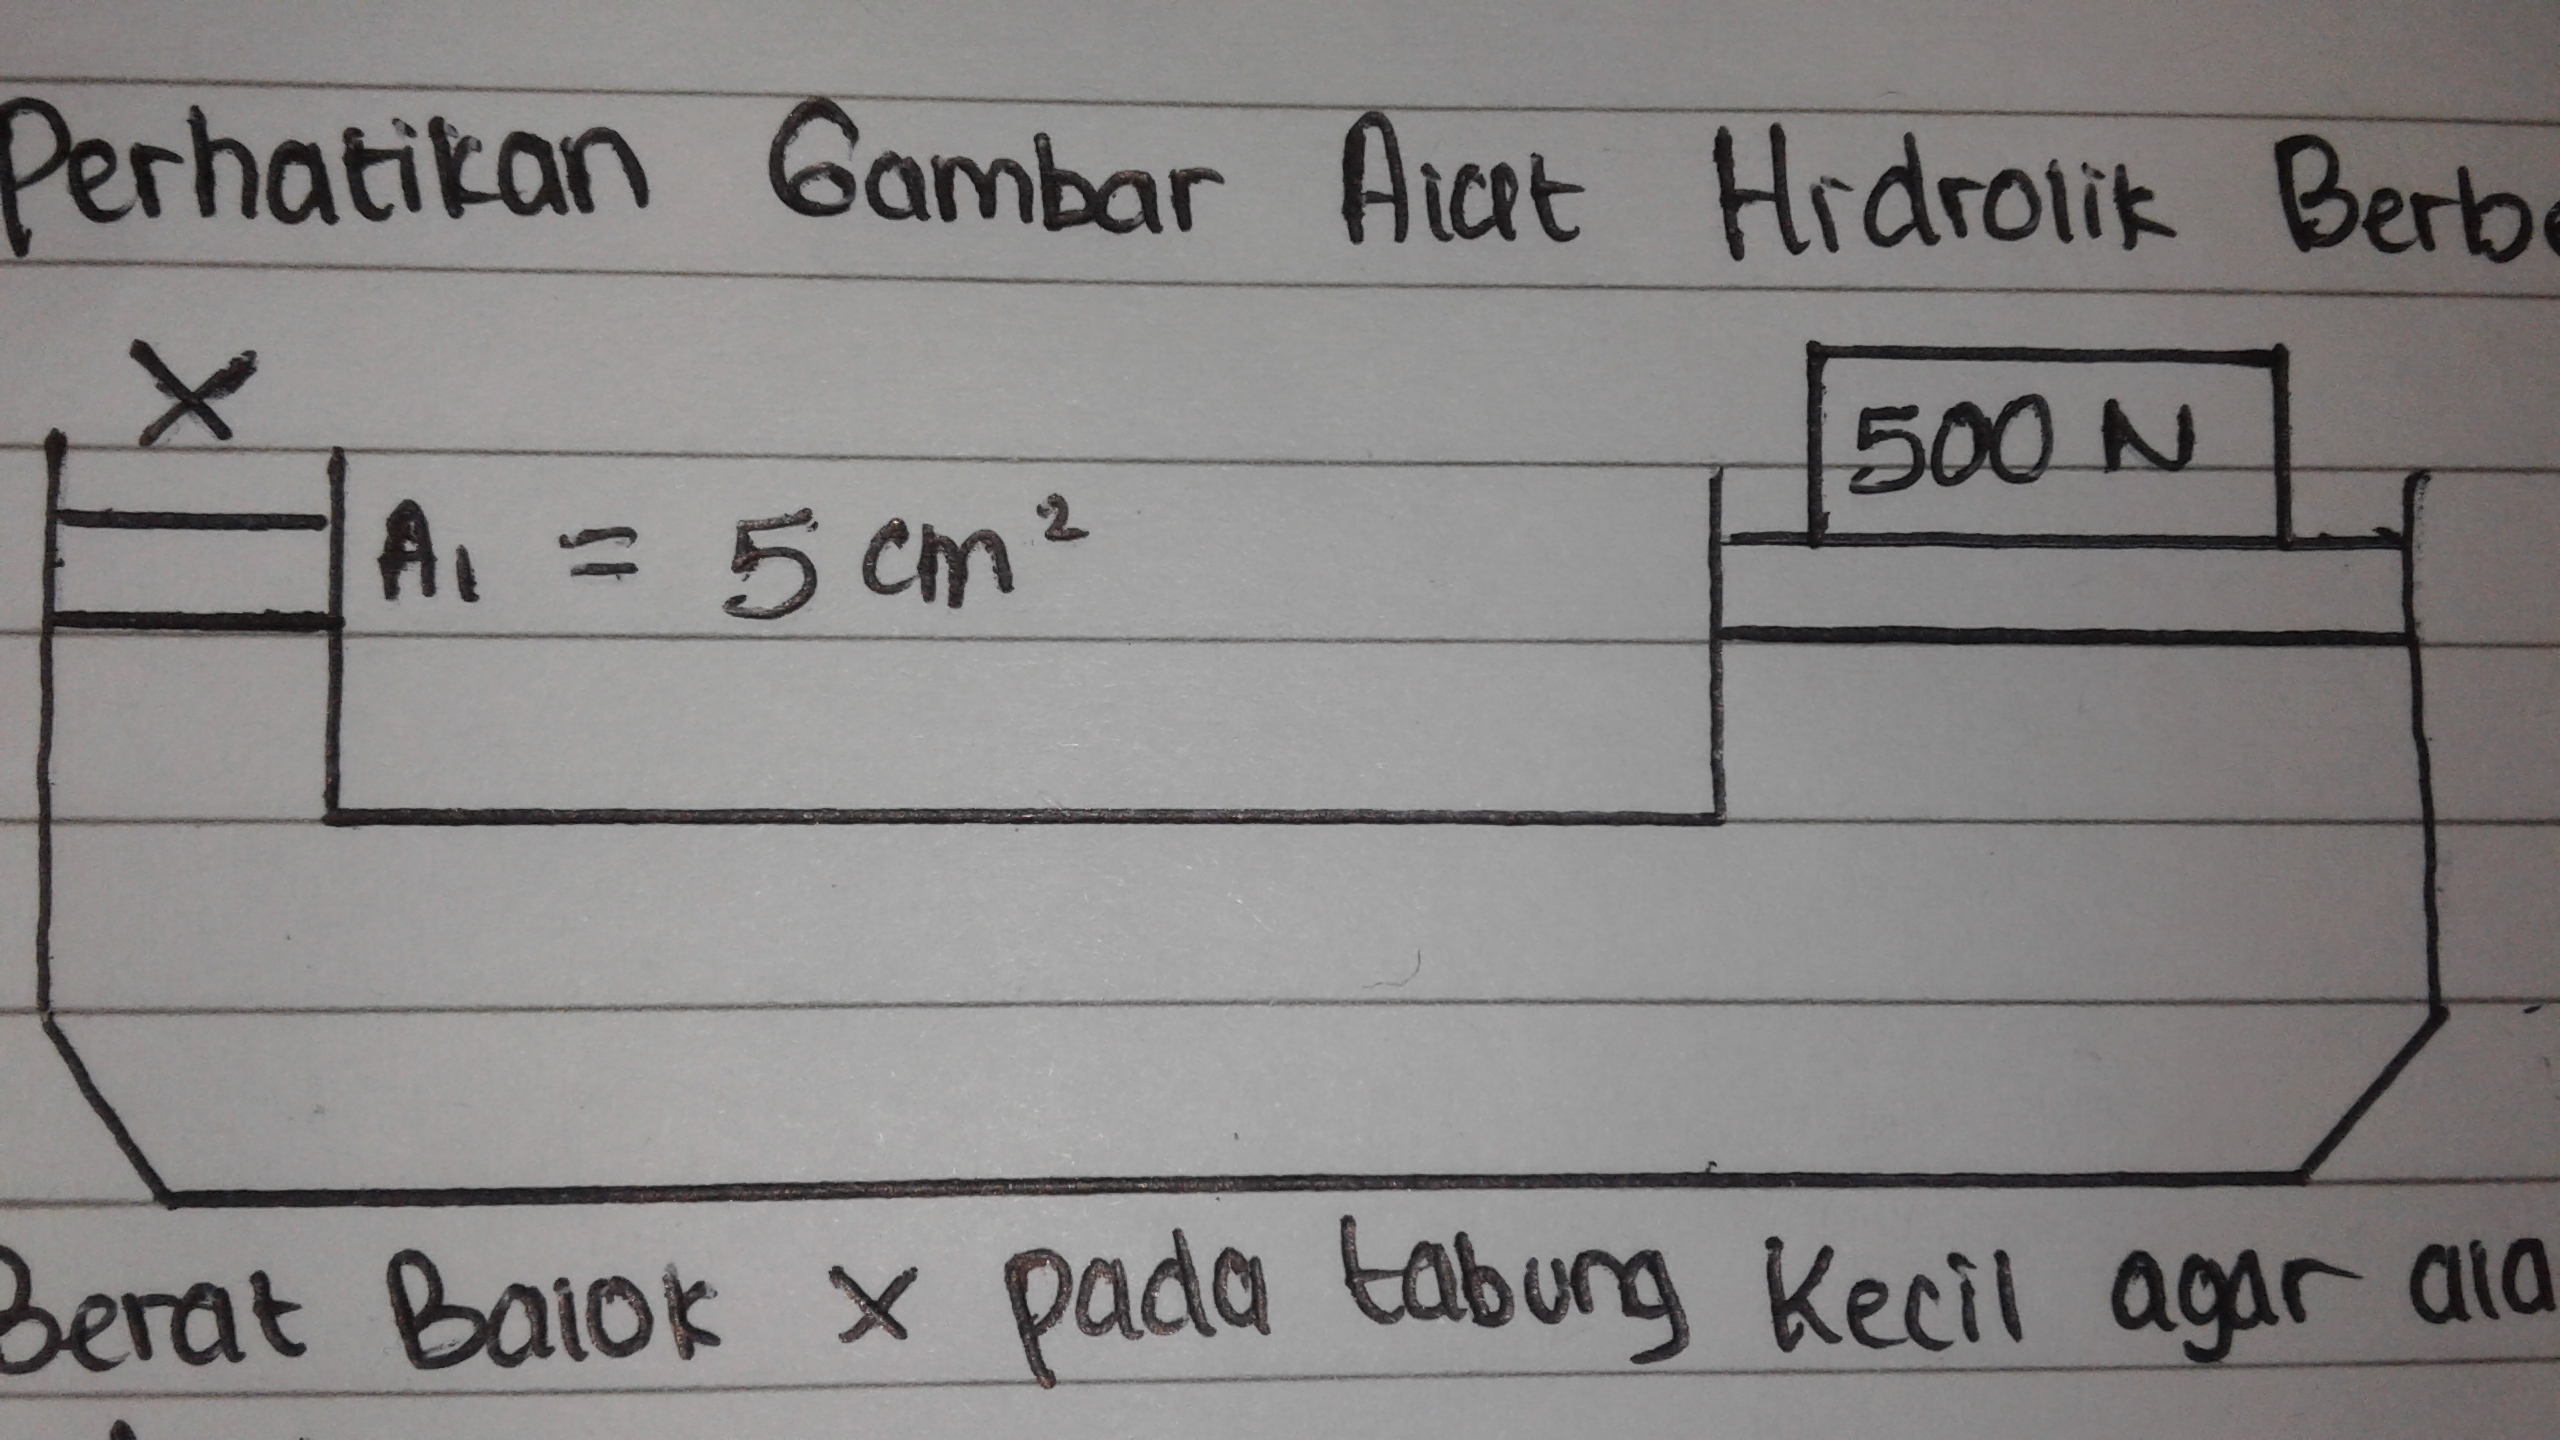 Perhatikan Gambar Alat Hidrolik Berbe
X
500 N
A1 = 5 cm²
Berat Balok x pada tabung Kecil agar ala